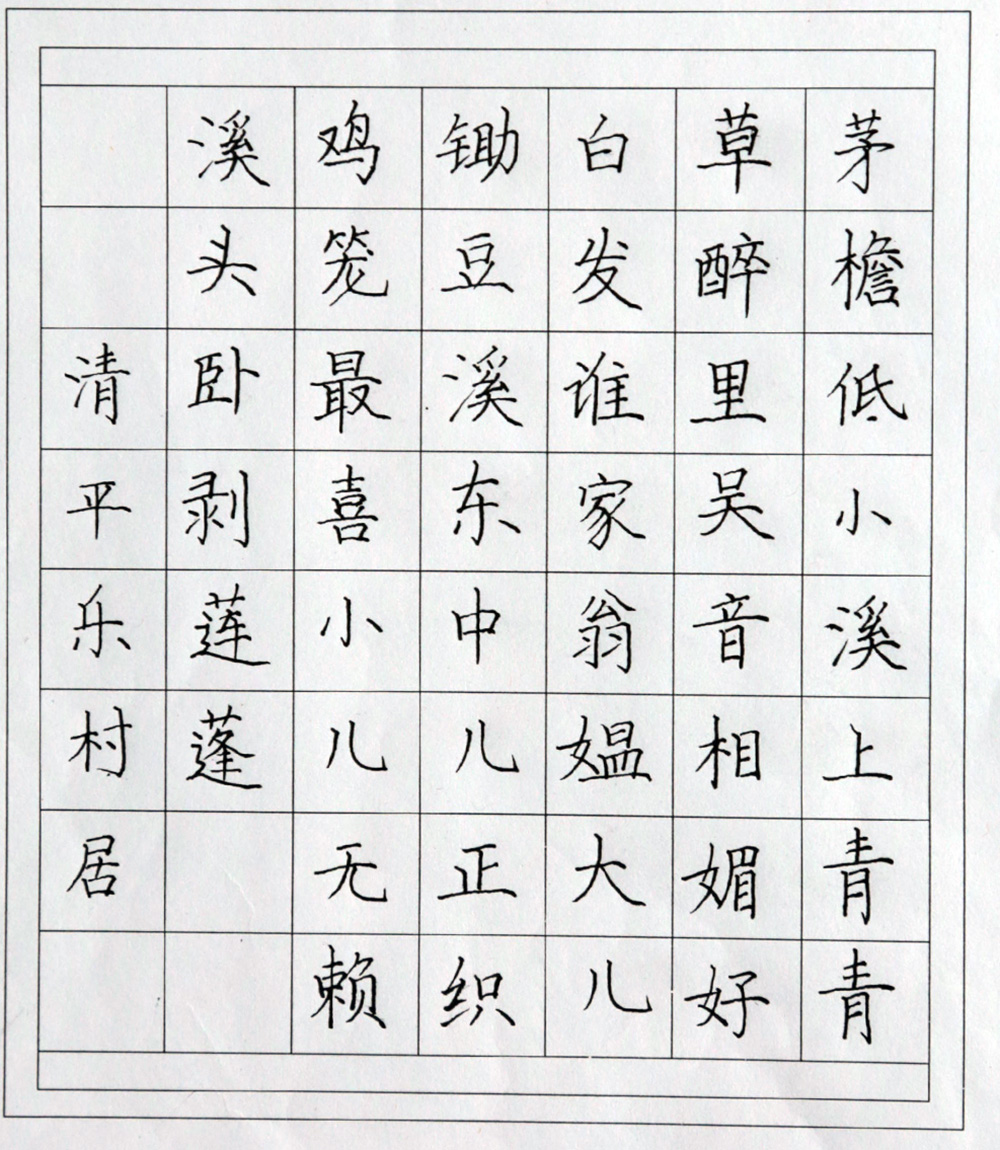 茅檐低小溪上青青
草醉里吴音相媚好
白发谁家翁媪大儿
锄豆溪东中儿正织
鸡笼最喜小儿无赖
溪头卧剥莲蓬
清平乐村居